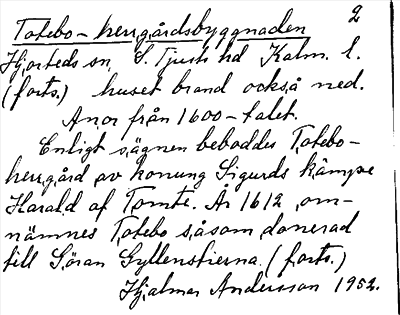 2
Totebo-herrgårdsbyggnaden
Hjorteds sn. S. Tjusts hd Kalm. l.
(forts.) huset brand också ned.
Anor från 1600-talet.
Enligt sägnen beboddes Totebo-
herrgård av konung Sigurds kämpe
Harald af Tomte. År 1612 om-
nämnes Totebo såsom donerad
till Göran Gyllenstierna. (forts.)
Hjalmar Andersson 1952.